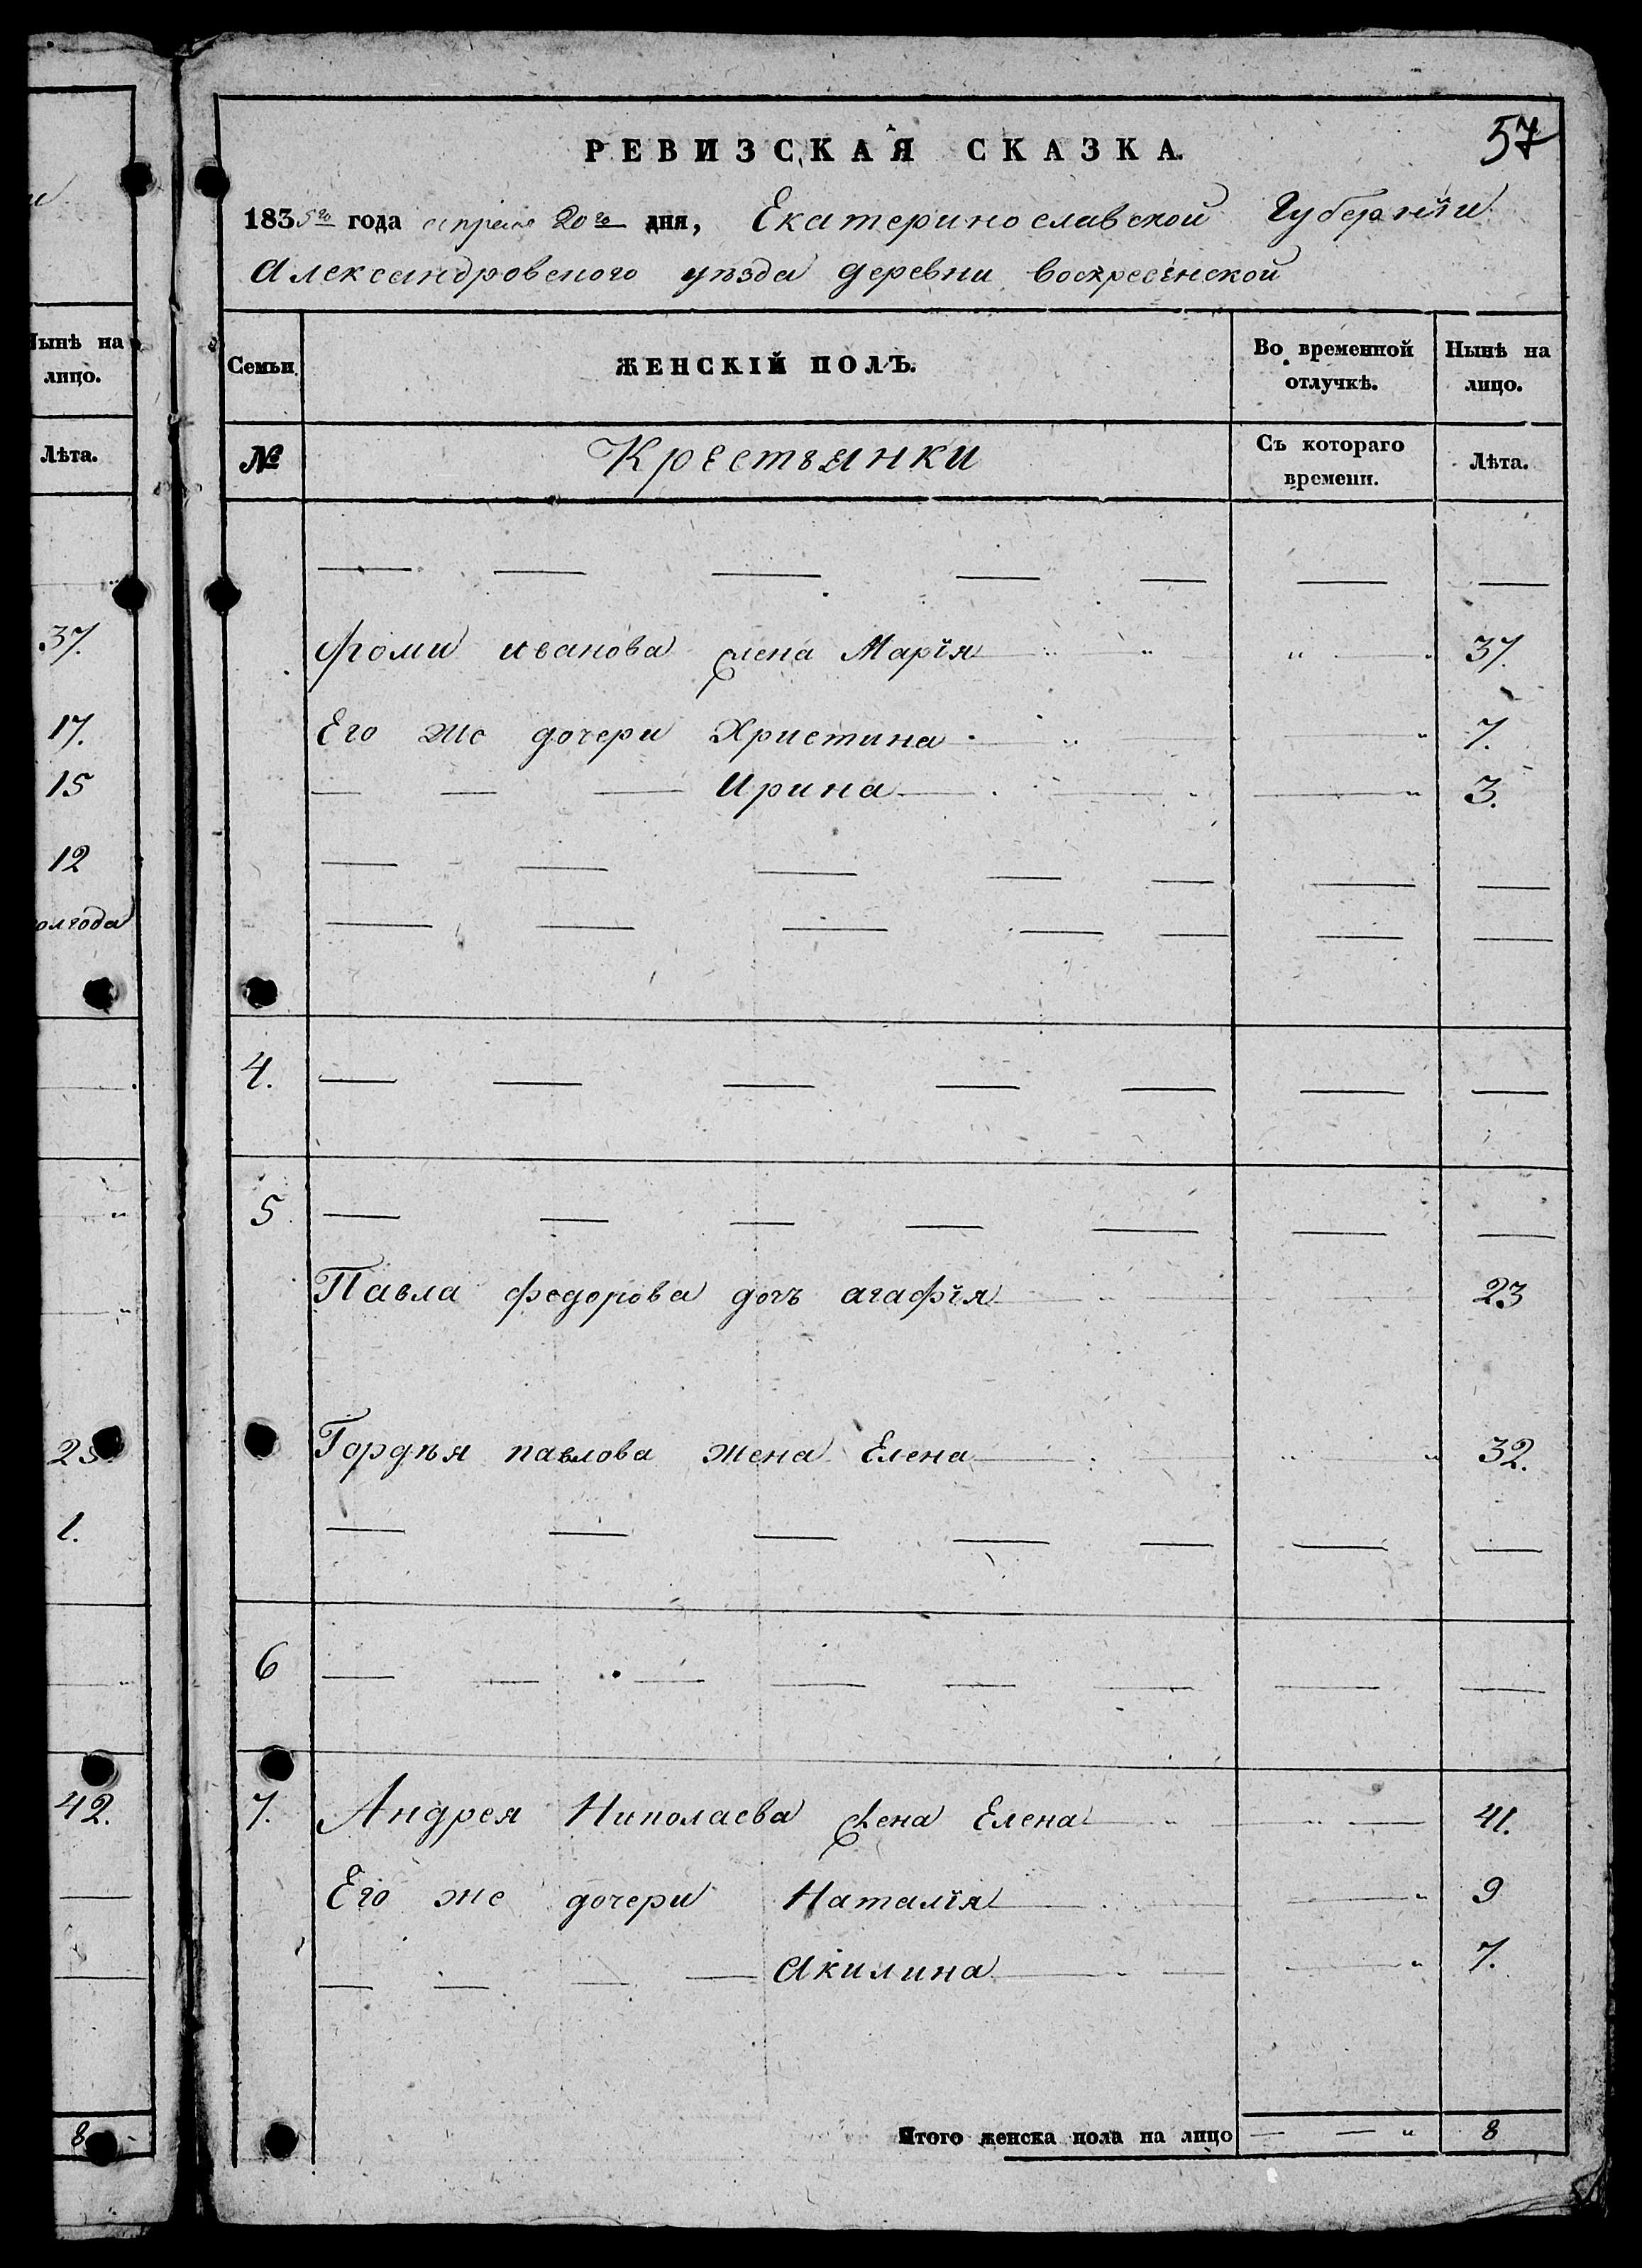 57
РЕВИЗСКАЯ СКАЗКА.
1835го года апреля 20го дня, Екатеринославской Губернїи
Александровского уѣзда деревни воскресенской
Семьи
ЖЕНСКІЙ ПОЛЪ.
Во временной отлучкѣ.
Нынѣ на лицо.
№
Крестьянки
Съ котораго времени.
Лѣта.
Фоми иванова жена Марїя 37.
Его же дочери Христина 7.
Ирина 3.
4.
5
Павла федорова дочь агафїя 23
Гордѣя павлова жена Елена 32.
6
7. Андрея Николаева жена Елена 41.
Его же дочери Наталїя 9
Акилина 7.
Итого женска пола на лицо 8
Нынѣ на
лицо.
Лѣта.
37.
17.
15
12
1.
42.
8